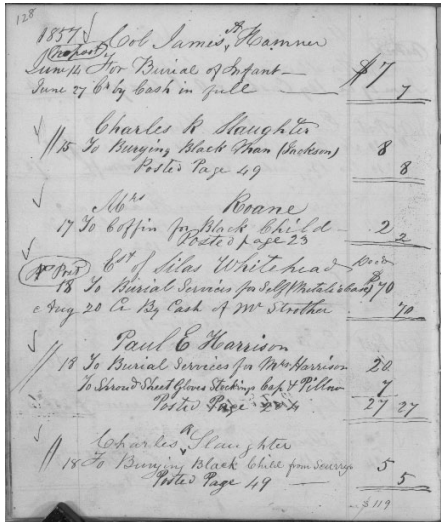 128
1857 Col James A Hamner
(no post)
June 14 For Burial of Infant — $7
June 27 Cr by Cash in full — 7
Charles R Slaughter
// 15 To Burying Black Man (Jackson) 8
Posted Page 49 8
Mrs Roane
17 To Coffin for Black Child — 2
Posted page 23 2
Est of Silas Whitehead
18 To Burial Services for Self (Metalic Case) $70
Aug 20 Cr By Cash of Mr Strother 70
Paul E Harrison
// 18 To Burial Services for Mrs Harrison 20
To Shroud Sheet Gloves Stockings Cap & Pillow 7
Posted Page 27 27
Charles R Slaughter
// 18 To Burying Black Child from 5
Posted Page 49 — 5
$119